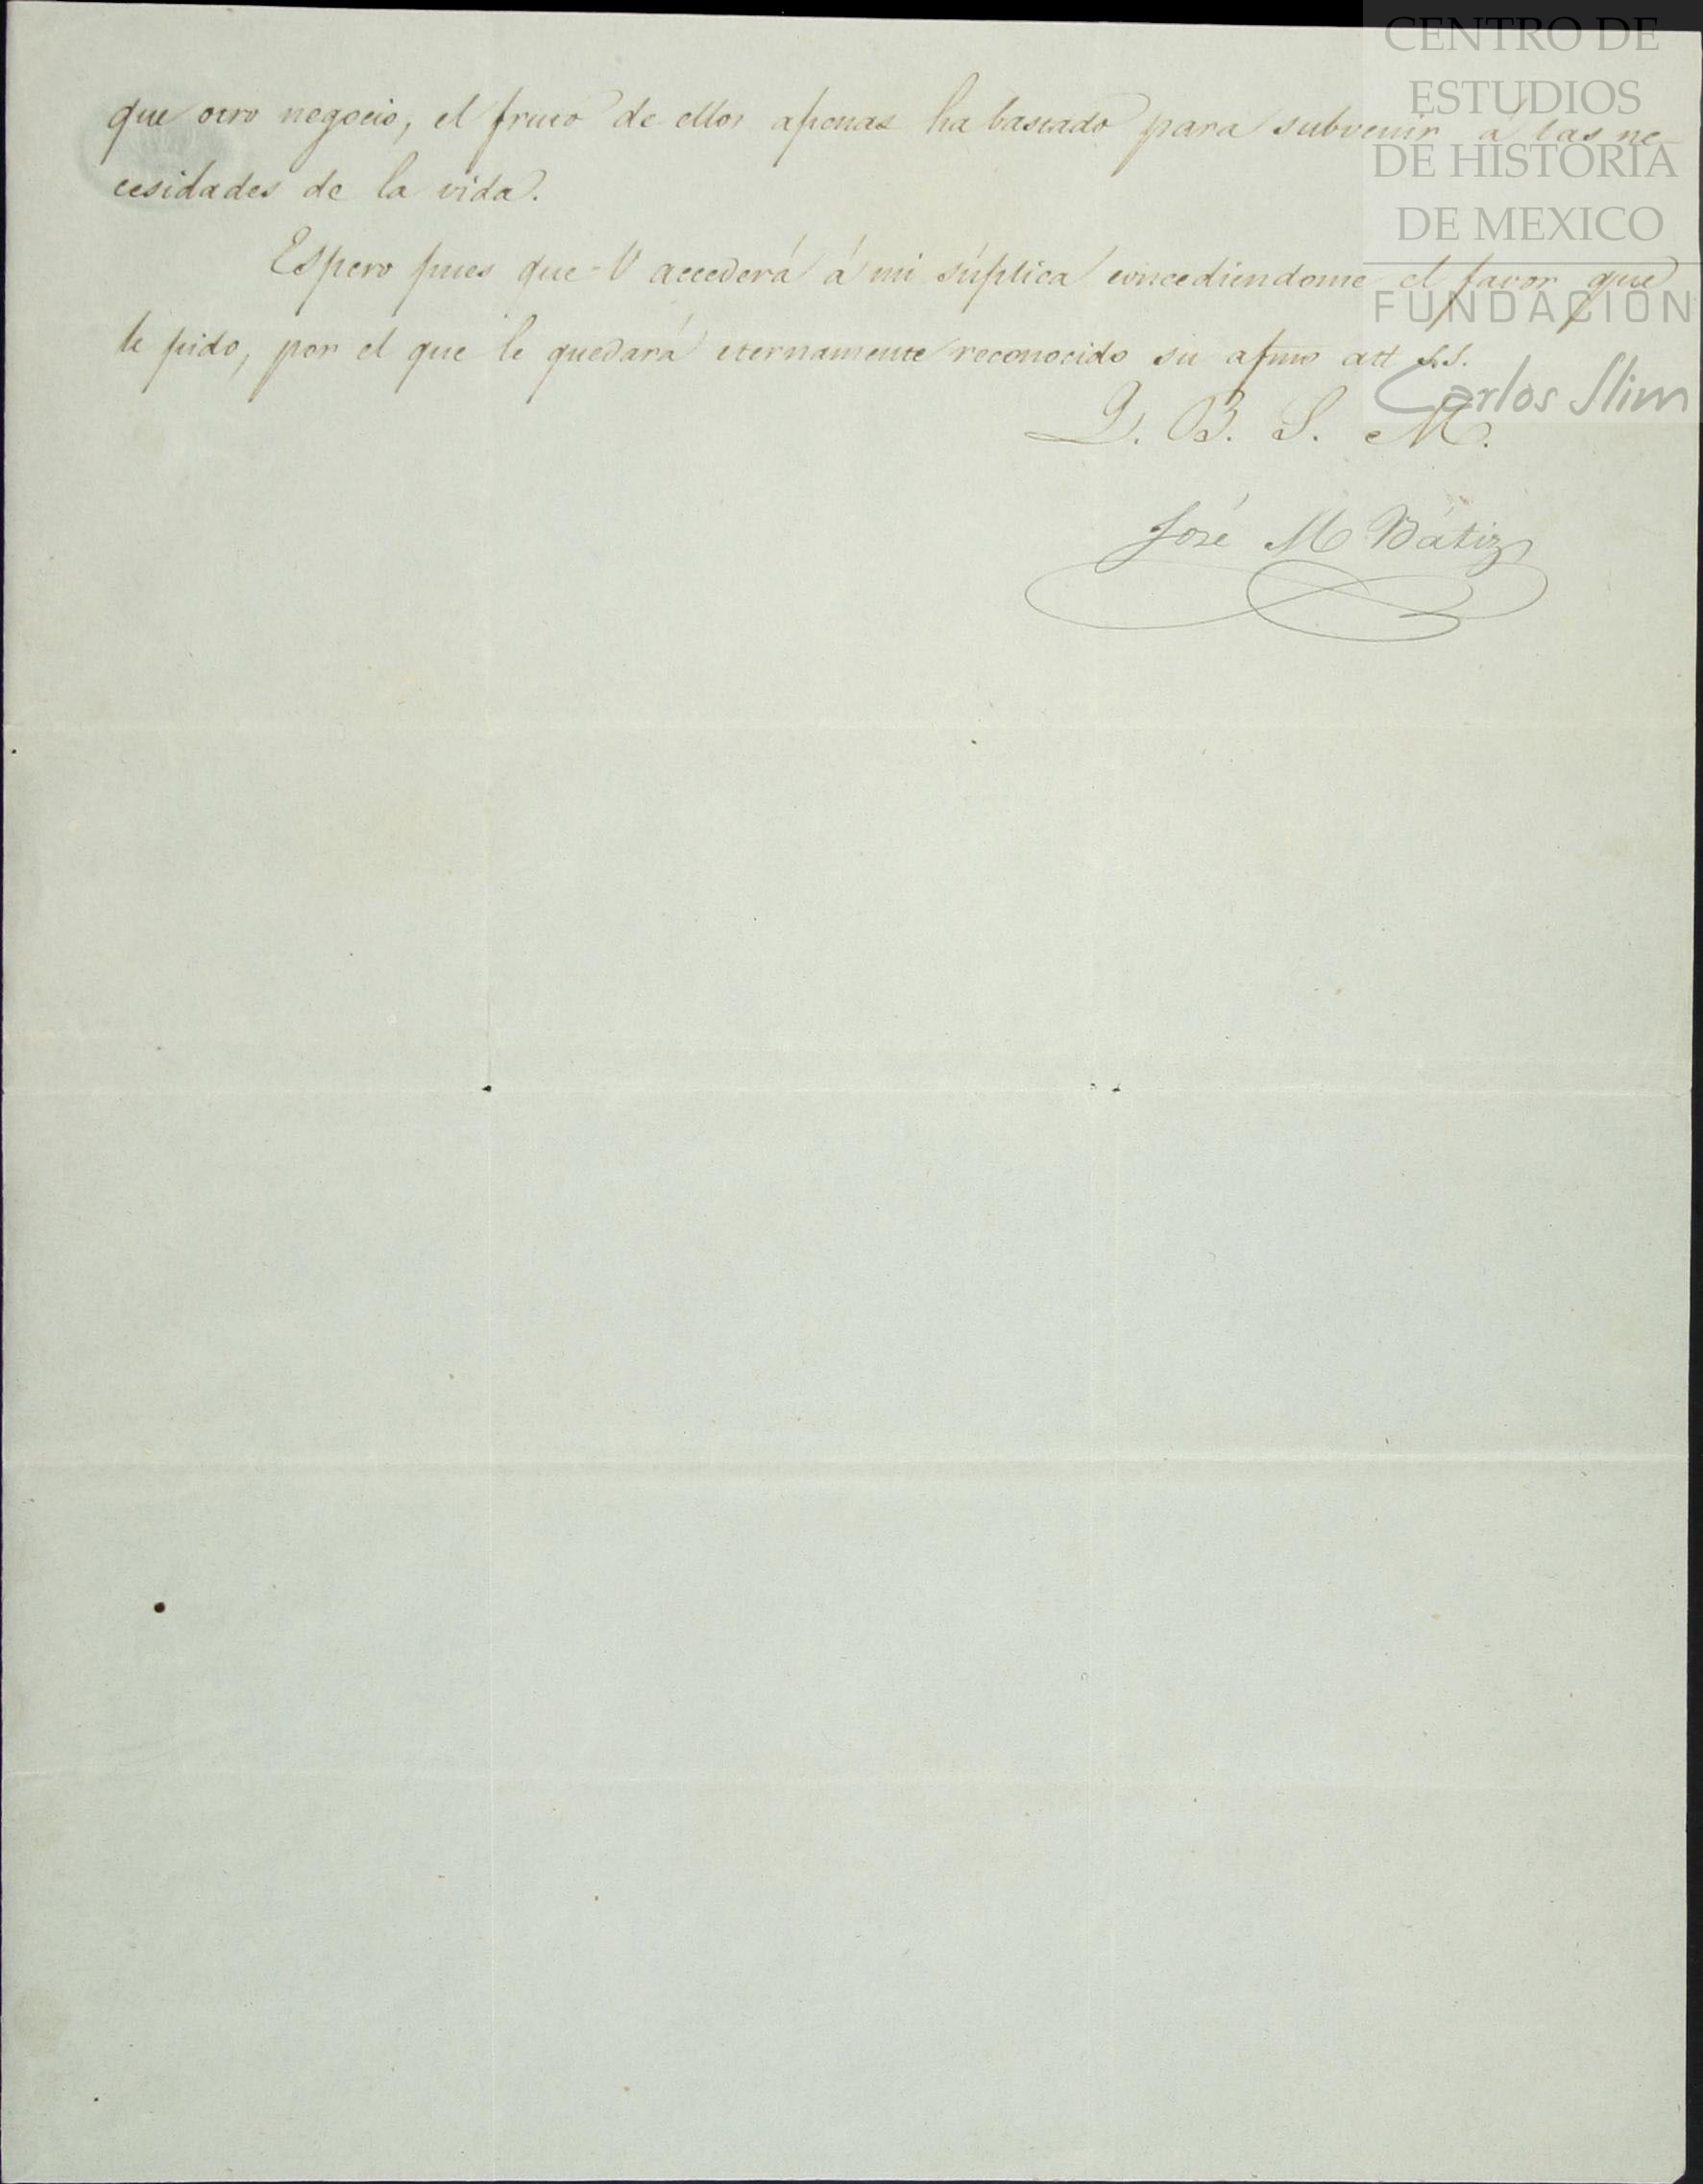 CENTRO DE
ESTUDIOS
DE HISTORIA
DE MEXICO
FUNDACIÓN
Carlos Slim
que otro negocio, el fruto de ellos apenas ha bastado para subvenir á las ne-
cesidades de la vida.
Espero pues que V accederá á mi súplica concediendome el favor que
le pido, por el que le quedará eternamente reconocido su afmo att S.S.
Q. B. S. M.
José M Bátiz